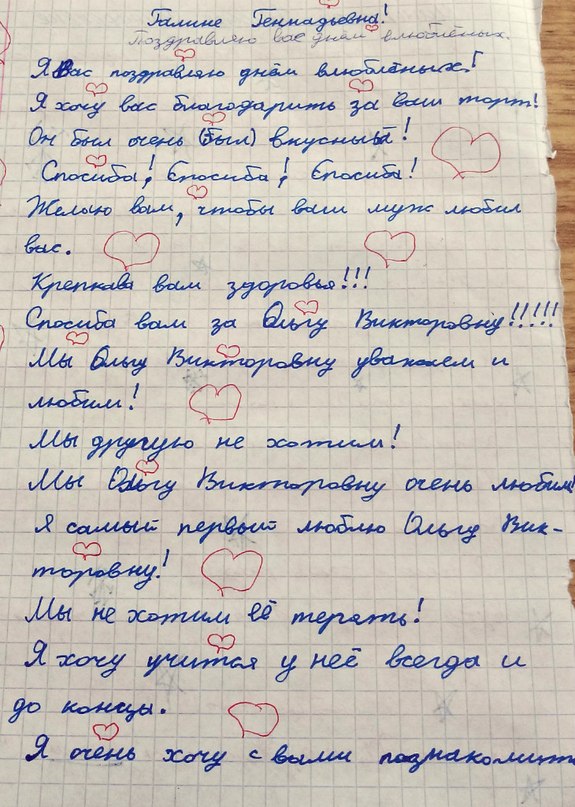 Галине Геннадьевна!
Поздравляю вас днём влюблёных.
Я Вас поздравляю днём влюблёных!
Я хочу вас благодарить за ваш торт!
Он был очень (был) вкусный!
Спосиба! Спосиба! Спосиба!
Желаю вам, чтобы ваш муж любил
вас.
Крепкава вам здоровья!!!
Спосиба вам за Ольгу Викторовну!!!!!
Мы Ольгу Викторовну уважаем и
любим!
Мы другую не хотим!
Мы Ольгу Викторовну очень любим!
Я самый первый люблю Ольгу Вик-
торовну!
Мы не хотим её терять!
Я хочу учится у неё всегда и
до концы.
Я очень хочу с вами познакомит